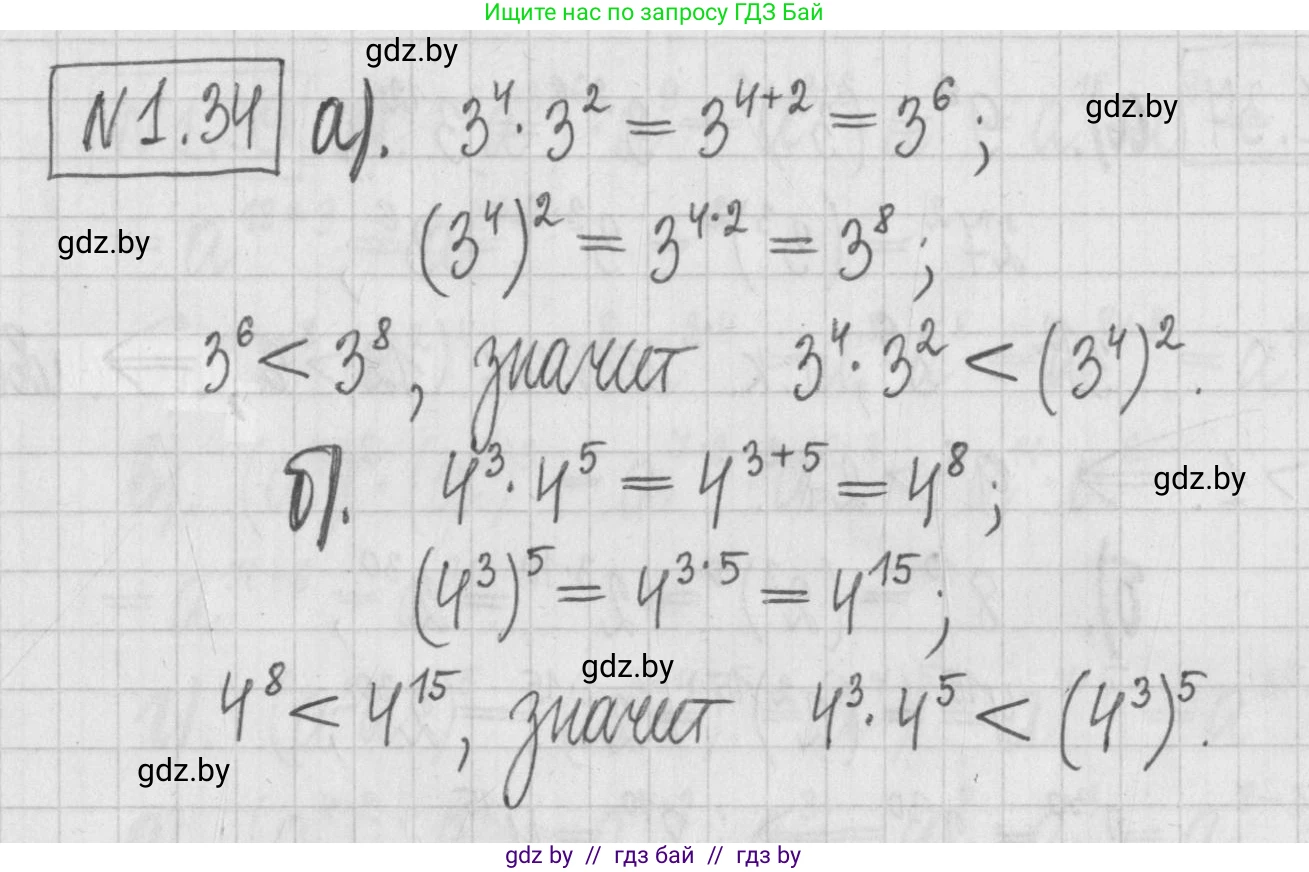 Ищите нас по запросу ГДЗ Бай
gdz.by
N 1.34 а). 3⁴ · 3² = 3⁴⁺² = 3⁶ ;
gdz.by
gdz.by
(3⁴)² = 3⁴˙² = 3⁸ ;
3⁶ < 3⁸ , значит 3⁴ · 3² < (3⁴)² .
б). 4³ · 4⁵ = 4³⁺⁵ = 4⁸ ;
gdz.by
(4³)⁵ = 4³˙⁵ = 4¹⁵ ;
gdz.by
4⁸ < 4¹⁵ , значит 4³ · 4⁵ < (4³)⁵ .
gdz.by
gdz by // гдз бай // гдз by